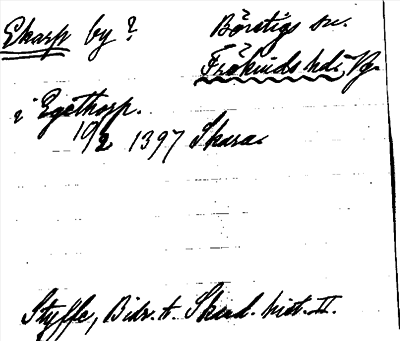 Ekarp by ? Börstigs sn.
Frökinds hd., Vg.
i Egethorp.
19/2 1397 Skara
Styffe, Bidr. t. Skand. hist. II.